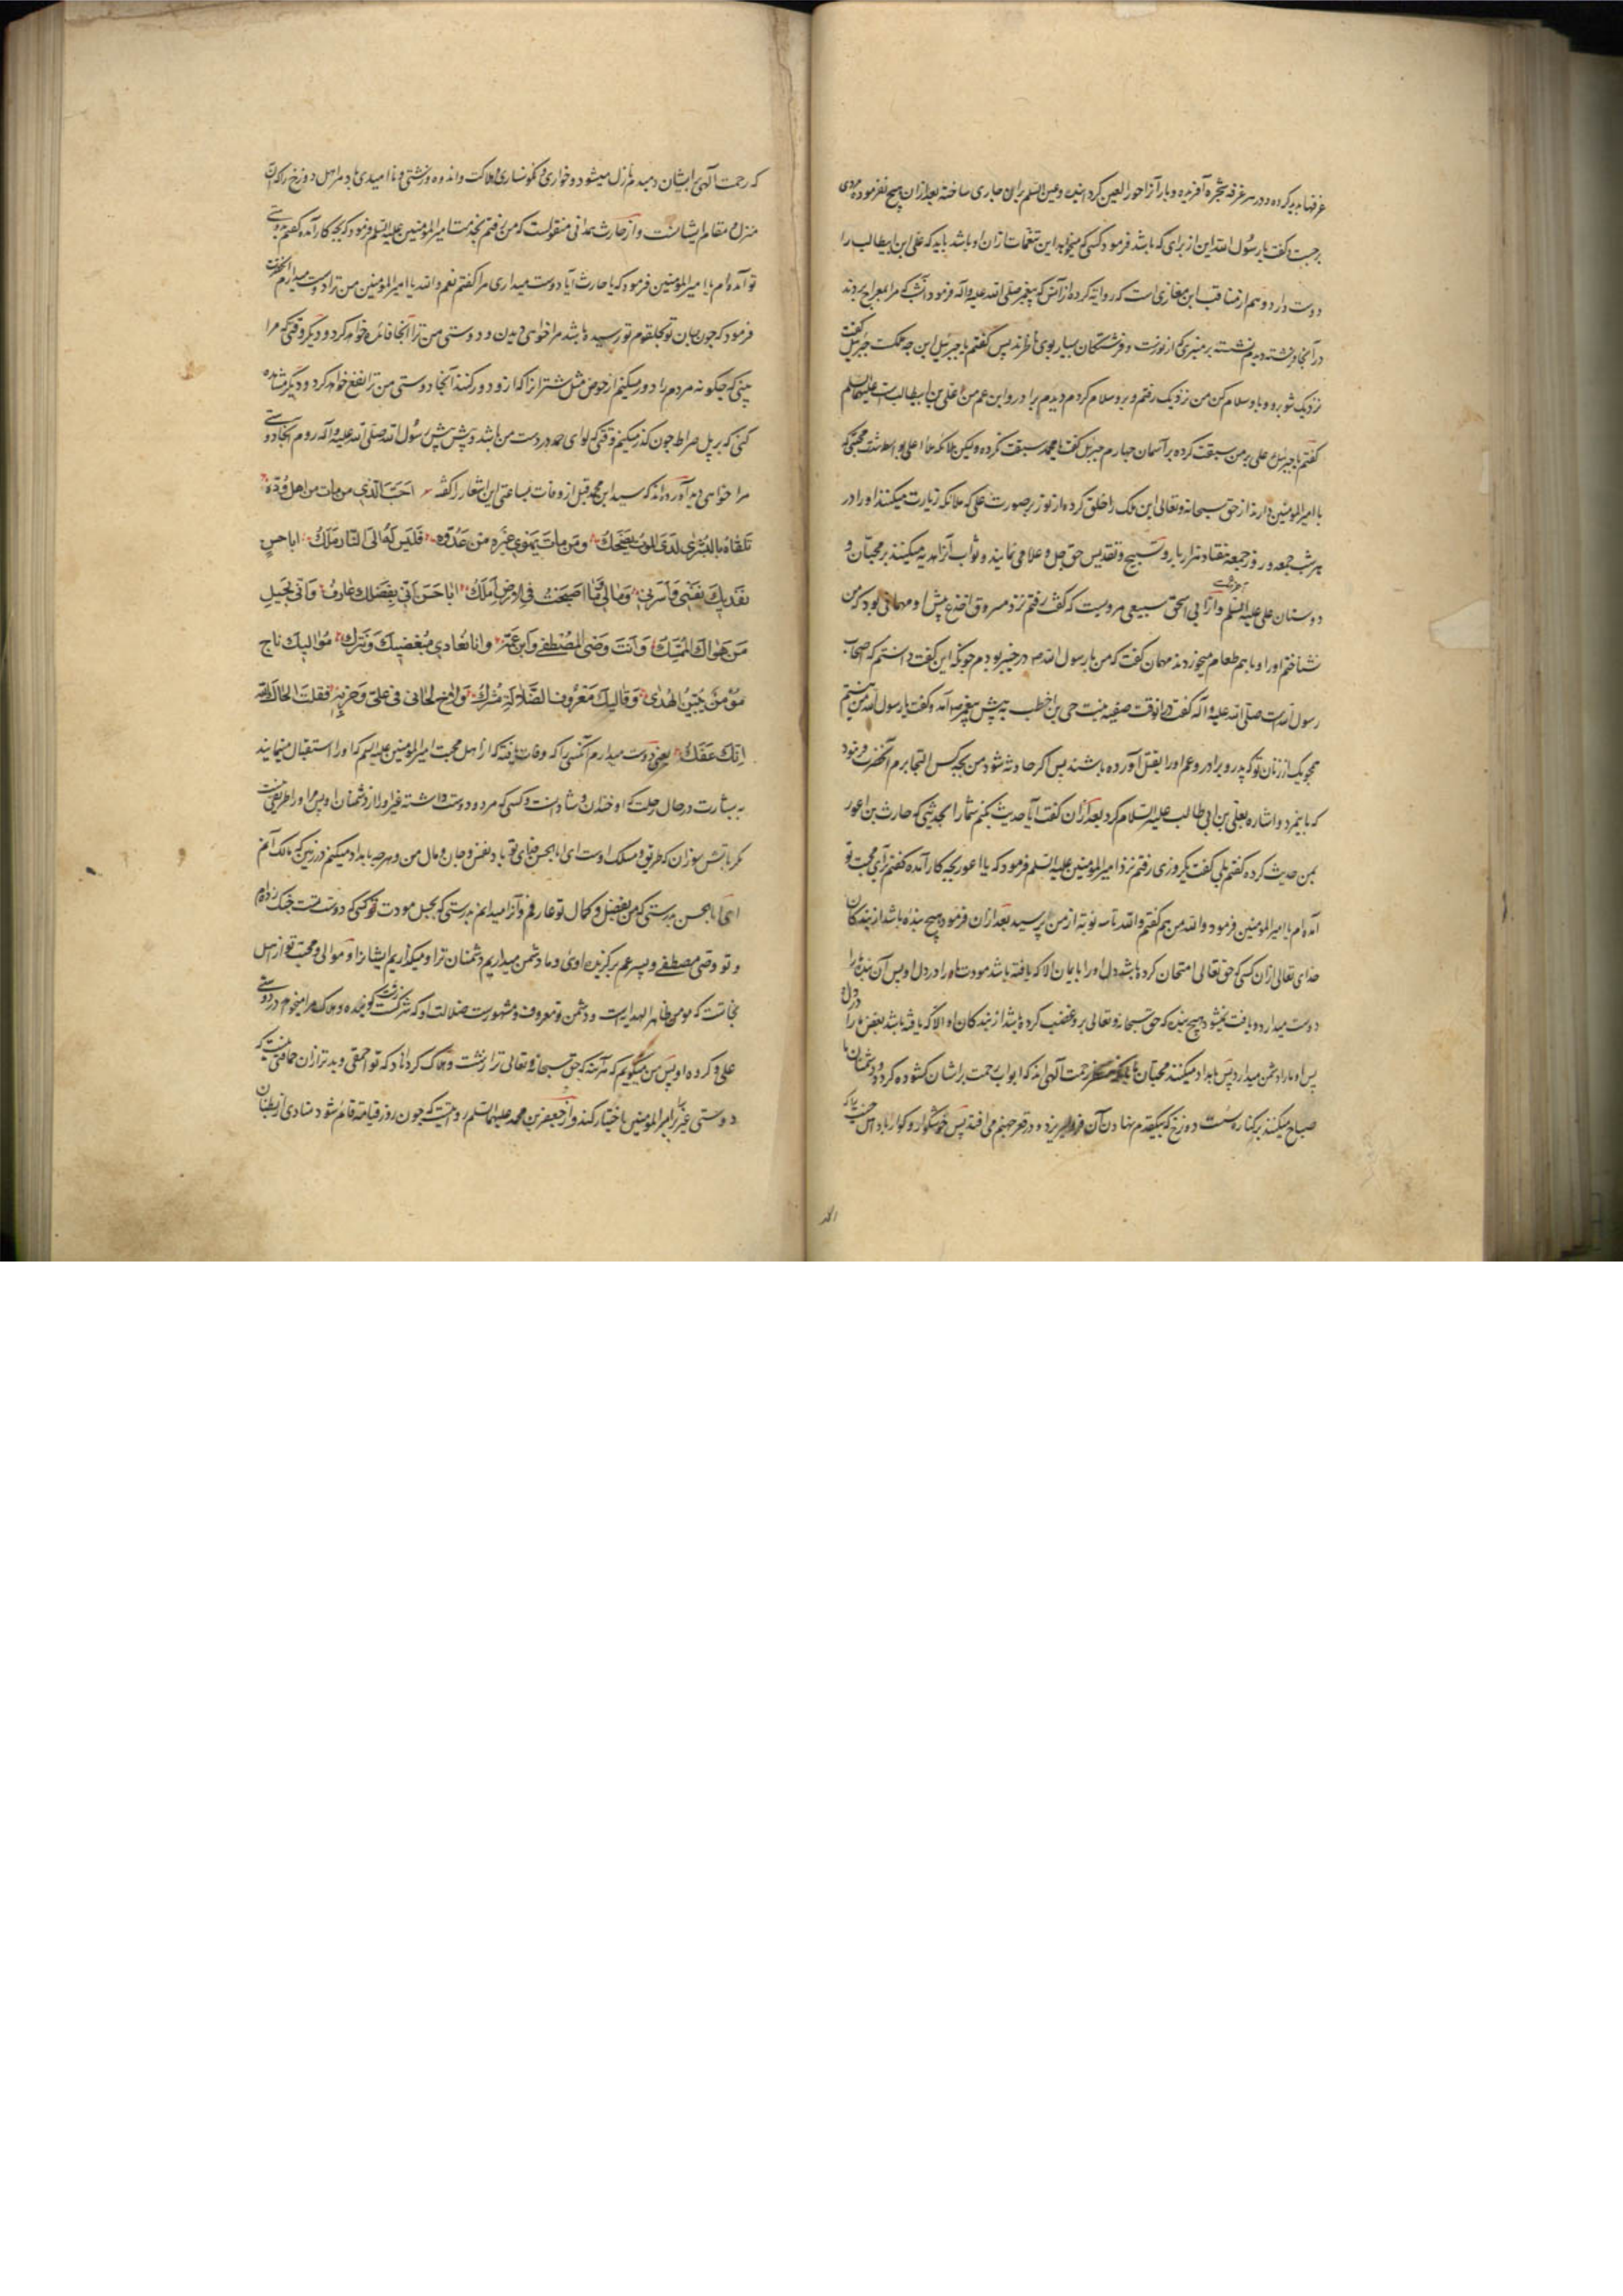 غرفها پدید کرده و در هر غرفه شجره آفریده و بار آنرا حور العین گردانیده و عین السلم برای جاری ساخته بعد از آن هیچ نفرموده مردی
برجست و گفت یا رسول الله این از برای که باشد فرمود کسی که میخواهد این تنعمات از آن او باشد باید که علی ابن ابیطالب را
دوست دارد و هم از مناقب ابن مغازلی است که روایة کرده از انس که پیغمبر صلی الله علیه و آله فرمود در آن شب که مرا بمعراج بردند
در آنجا فرشته دیدم نشسته بر منبری که از نورست و فرشتگان بسیار بوی ناظرند پس گفتم یا جبرئیل این چه ملکست جبرئیل گفت
نزدیک شو برو و با و سلام کن من نزدیک رفتم و برو سلام کردم دیدم برادر و ابن عم من علی بن ابیطالب است علیه السلم
گفتم یا جبرئیل علی بر من سبقت کرده بر آسمان چهارم جبرئیل گفت یا محمد سبقت نکرده و لیکن ملائکه ملاء اعلی بواسطه شدت محبتی که
با امیر المومنین دارند از حق سبحانه و تعالی این ملک را خلق کرده از نور بر صورت علی که ملائکه زیارت میکنند او را در
هر شب جمعه و روز جمعه هفتاد هزار بار و تسبیح و تقدیس حق جل و علا می نمایند و ثواب آنرا هدیه میکنند بر محبان و
دوستان علی علیه السلم و از ابی اسحق سبیعی مرویست که گفت رفتم نزد مسروق اجدع پیش او مهمانی بود که من
نشناختم او را و با هم طعام میخوردند مهمان گفت که من با رسول الله ص در خیبر بودم چونکه این گفت دانستم که اصحاب
رسول الله است صلی الله علیه و آله گفت در آنوقت صفیه بنت حی بن اخطب به پیش پیغمبر ص آمد و گفت یا رسول الله من نیستم
همچو یک از زنان تو که پدر و برادر و عم او را بقتل آورده باشند پس اگر حادثه شود من بچه کس التجا برم آنحضرت فرمود
که باینمرد و اشاره بعلی بن ابی طالب علیه السلام کرد بعد از آن گفت آیا حدیث بکنم شما را بحدیثی که حارث بن اعور
بمن حدیث کرده گفتم بلی گفت یکروزی رفتم نزد امیر المومنین علیه السلم فرمود که یا اعور بچه کار آمده گفتم برای محبت تو
آمده ام یا امیر المومنین فرمود و الله من هم گفتم و الله تا سه نوبة از من پرسید بعد از آن فرمود هیچ بنده باشد از بندگان
خدای تعالی از آن کسی که حق تعالی امتحان کرده باشد دل او را بایمان الا که یافته باشد مودت ما در دل او پس آن بنده ما را
دوست میدارد و یافت نمیشود هیچ بنده که حق سبحانه و تعالی برو غضب کرده باشد از بندگان او الا که یافته باشد بغض ما را در دل او
پس او ما را دشمن میدارد پس بامداد میکنند محبان ما رحمت آلهی اند که ابواب رحمت بر ایشان گشوده گردد و دشمنان ما
صباح میکنند بر کناره سست دوزخ که بیکقدم نهادن آن فرو ریزد و در قعر جهنم می افتد پس خوشگوار و گوارا باد اهل جنت را که
که رحمت آلهی بر ایشان دمبدم نازل میشود و خواری و نگونساری و هلاکت و اندوه و زشتی و نا امیدی باد مر اهل دوزخ را که آن
منزل و مقام ایشانست و از حارث همدانی منقولست که من رفتم بخدمت امیر المومنین علیه السلم فرمود که بچه کار آمده گفتم بدوستی
تو آمده ام یا امیر المومنین فرمود که یا حارث آیا دوست میداری مرا گفتم نعم و الله یا امیر المومنین من ترا دوست میدارم آنحضرت
فرمود که چون جان تو بحلقوم تو رسیده باشد مرا خواهی دیدن و دوستی من ترا آنجا فائده خواهد کرد و دیگر وقتی که مرا
بینی که چگونه مردم را دور میکنم از حوض مثل شتران را که ازو دور کنند آنجا دوستی من ترا نفع خواهد کرد و دیگر مشاهده
کنی که بر پل صراط چون گذر میکنم وقتی که لوای حمد در دست من باشد و پیش پیش رسول الله صلی الله علیه و آله روم آنجا دوستی
مرا خواهی دید آورده اند که سید ابن محمد قبل از وفات بساعتی این اشعار را گفته احب الذي من مات من اهل وده
تلقاه بالبشرى لدى الموت يضحك ومن مات يهوى غيره من عدوه فليس له الا الى النار مسلك ابا حسن
نفديك نفسي واسرتي وما لي وما اصبحت في الارض املك ابا حسن اني بفضلك عارف واني بحبل
من هواك لممسك وانت وصي المصطفى وابن عمه وانا نعادي مبغضيك ونترك مواليك ناج
مؤمن بين الهدى وقاليك معروف الضلالة مشرك ولاح لحاني في علي وحزبه فقلت لحاك الله
انك عفك یعنی دوست میدارم آنکسی را که وفات یافته که از اهل محبت امیر المومنین علیه السلم که او را استقبال مینمایند
به بشارت در حال رحلت که او خندان و شادانست و کسی که مرد و دوست داشته غیر او را از دشمنان او پس مر او را طریقی نیست
مگر باتش سوزان که طریق و مسلک اوست ای ابا الحسن فدای تو باد نفس و جان و مال من و هر چه بامداد میکنم در زمین که مالک آنم
ای ابا الحسن بدرستی که من بفضل و کمال تو عارفم و آنرا میدانم بدرستی که بحبل مودت تو کسی که دوست تست چنگ زده ام
و تو وصی مصطفی و پسر عم برگزیده اوئی و ما دشمن میداریم دشمنان ترا و میگذاریم ایشانرا و موالی و محب تو از اهل
نجاتست که مومن ظاهر الهدایست و دشمن تو معروف و مشهورست ضلالت او که مشرکست و نکوهنده و ملامت مرا در دوستی
علی و گروه او پس من میگویم که هر آینه که حق سبحانه و تعالی ترا زشت و هلاک گرداناد که تو احمقی و بدتر از آن حماقتی نیست که
دوستی غیر را بر امیر المومنین اختیار کند و از جعفر بن محمد علیهما السلم روایتست که چون روز قیامة قائم شود منادی از بطنان